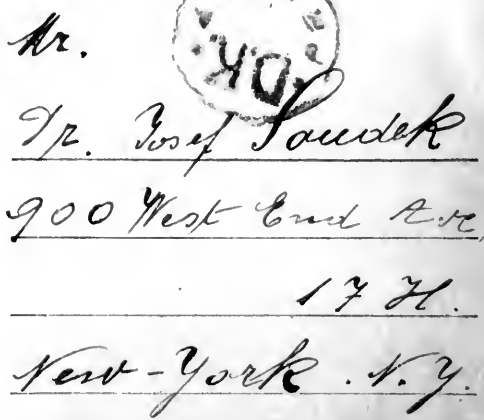 Mr.
Dr. Josef Soudek
900 West End Ave
17 H.
New-York. N.Y.